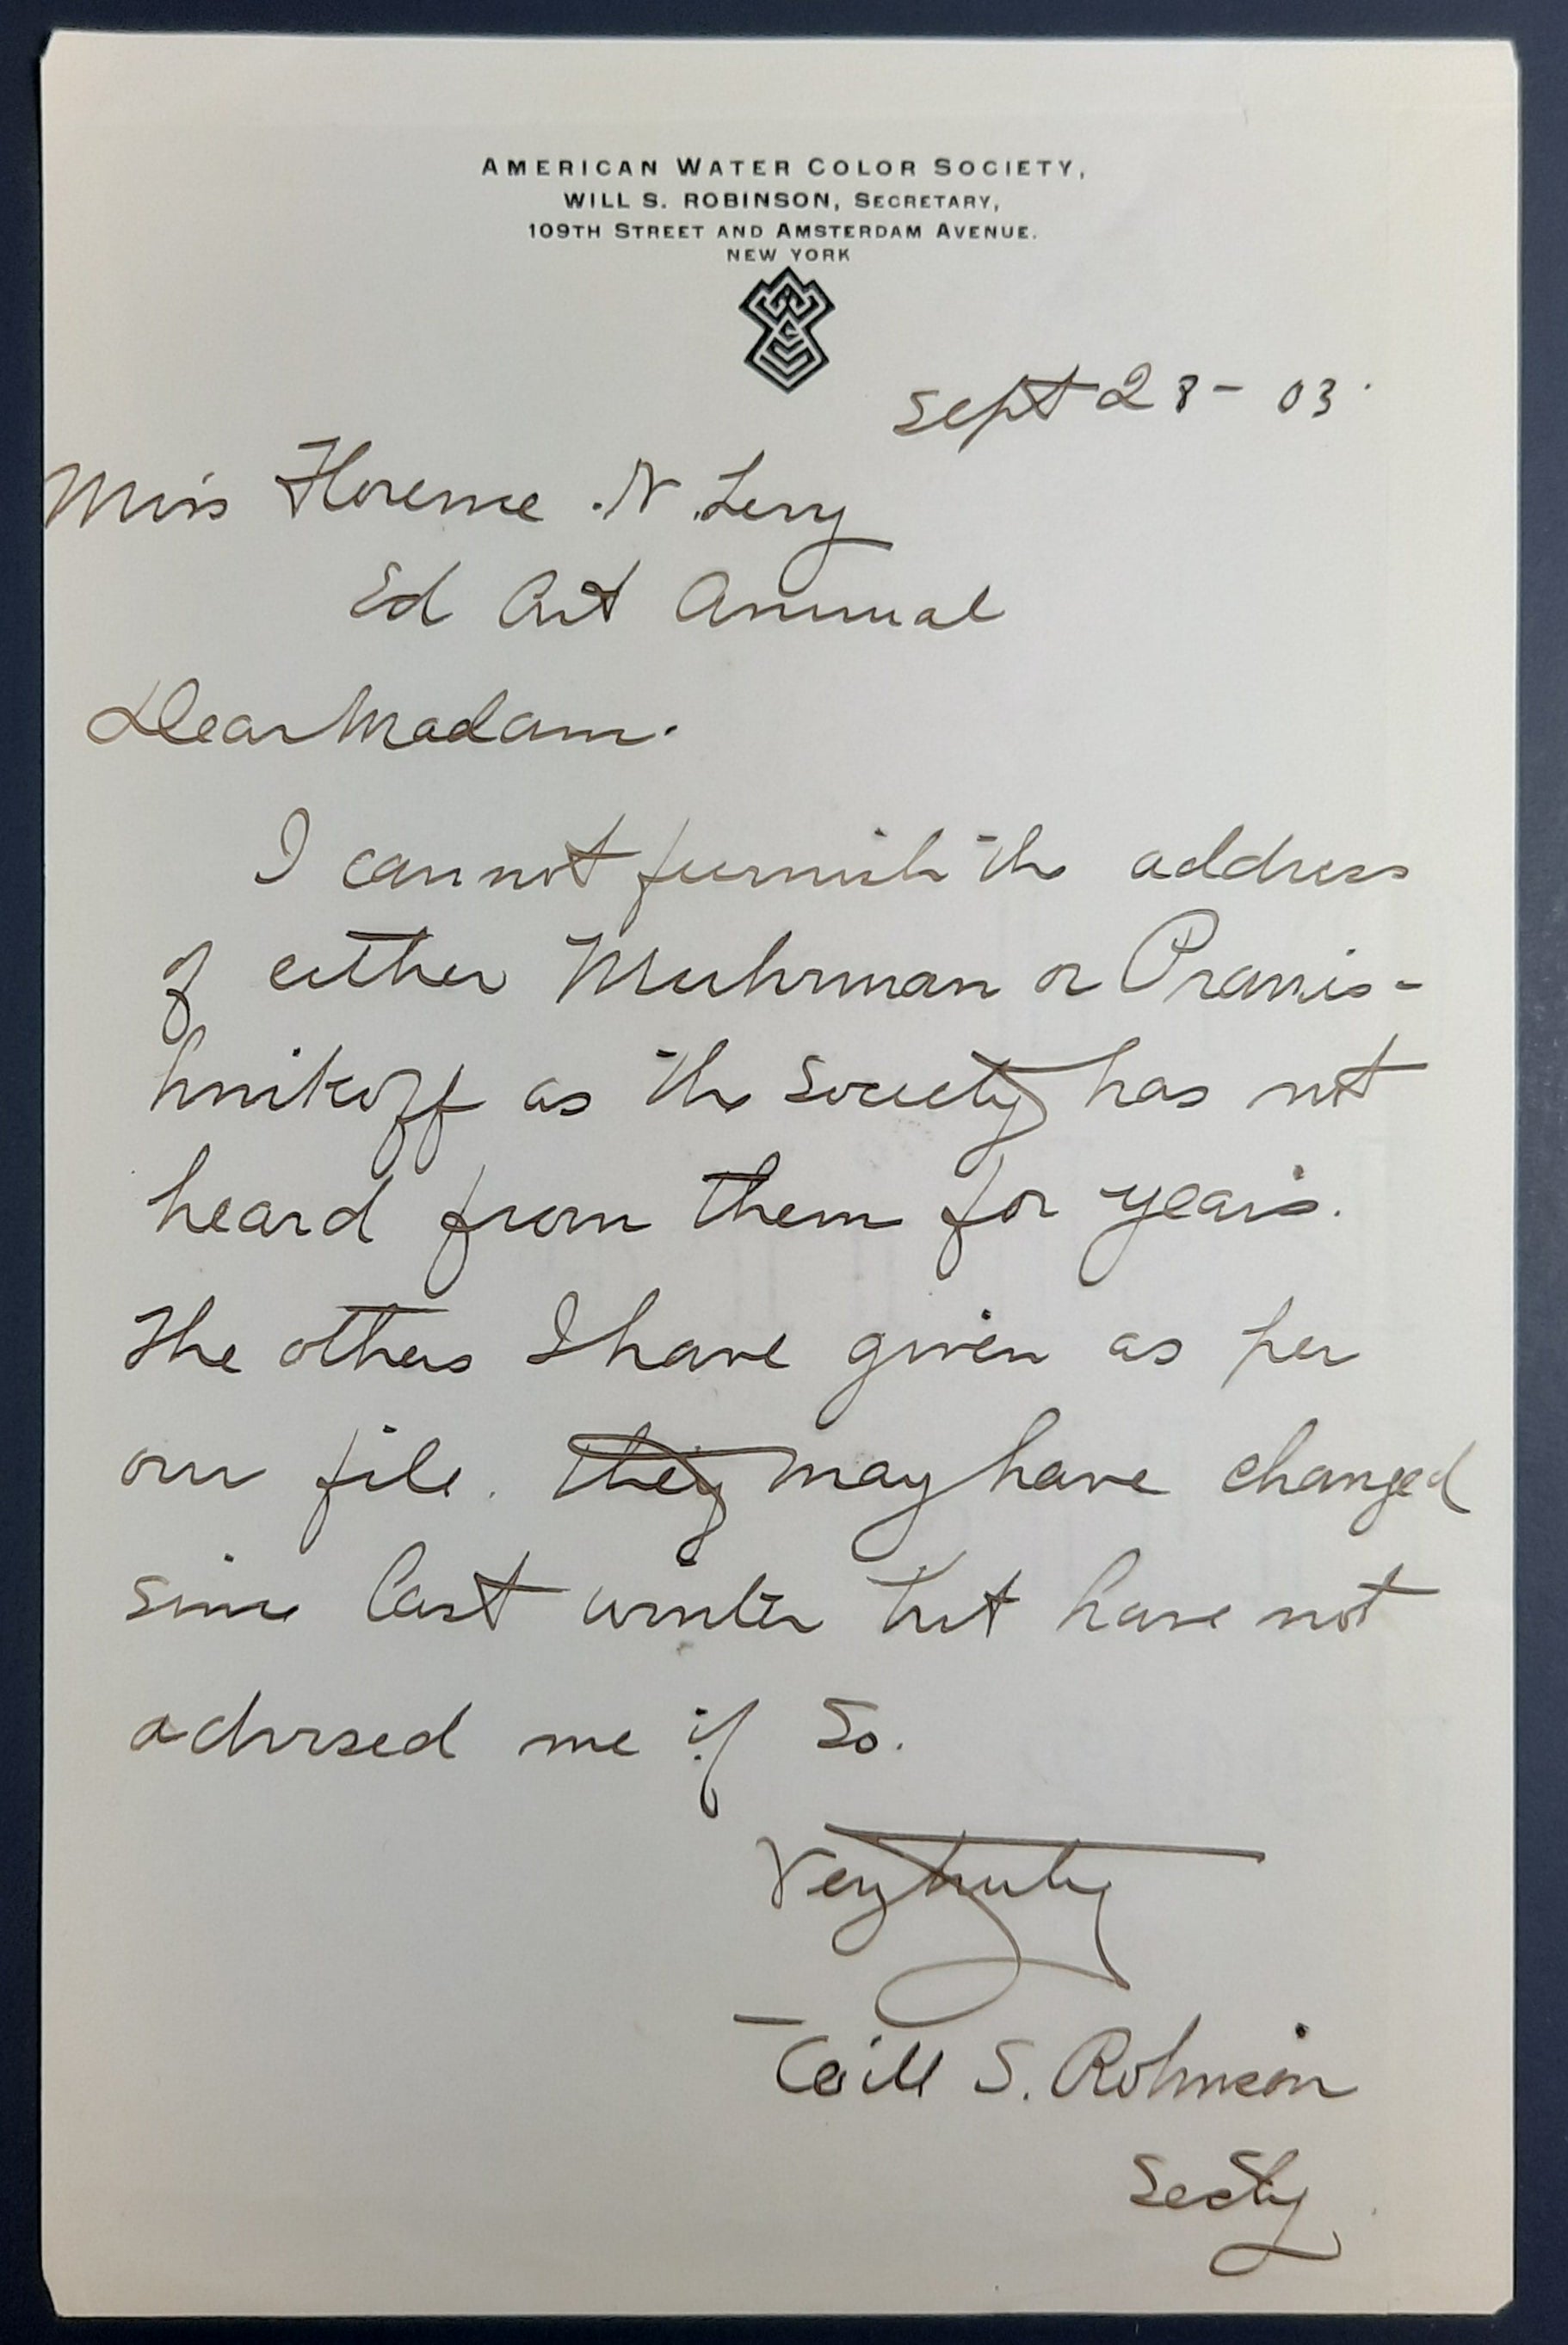 AMERICAN WATER COLOR SOCIETY,
WILL S. ROBINSON, SECRETARY,
109TH STREET AND AMSTERDAM AVENUE.
NEW YORK
Sept 28 - 03.
Miss Florence .N. Levy
Ed Art Annual
Dear Madam.
I cannot furnish the address
of either Muhrman or Pranis-
hnikoff as the Society has not
heard from them for years.
The others I have given as per
our file. They may have changed
since last winter but have not
advised me if so.
Very truly
Will S. Robinson
Secty